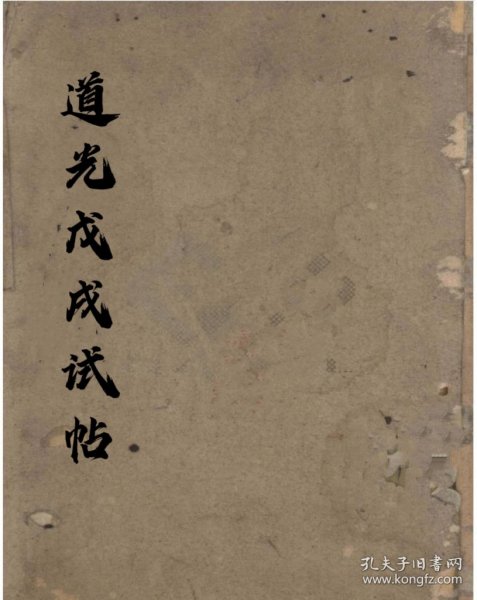 道光戊戌试帖
孔夫子旧书网
www.kongfz.com